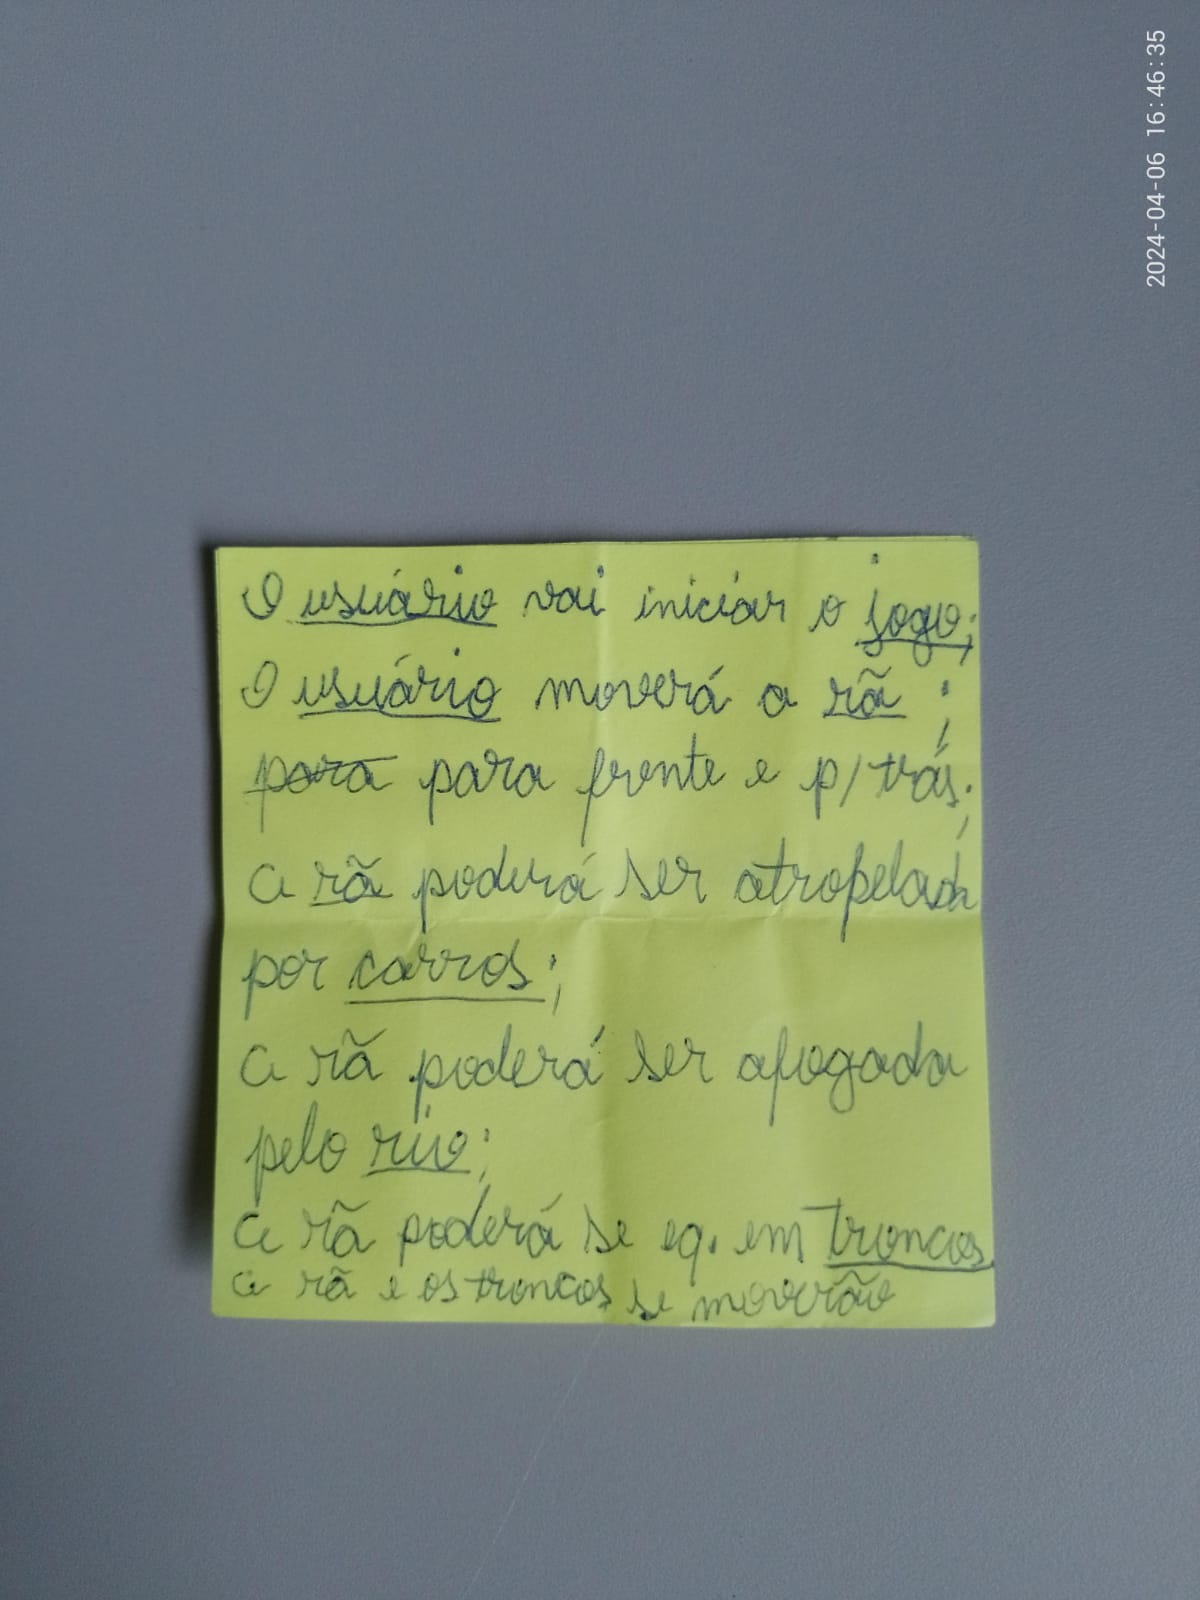 2024-04-06 16:46:35
O usuário vai iniciar o jogo;
O usuário moverá a rã ;
para para frente e p/ trás;
a rã poderá ser atropelada
por carros;
a rã poderá ser afogada
pelo rio;
a rã poderá se eq. em troncos
a rã e os troncos se moverão